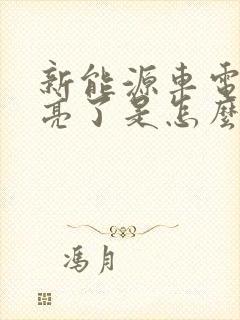 新能源車電
亮了是怎麼
馮月